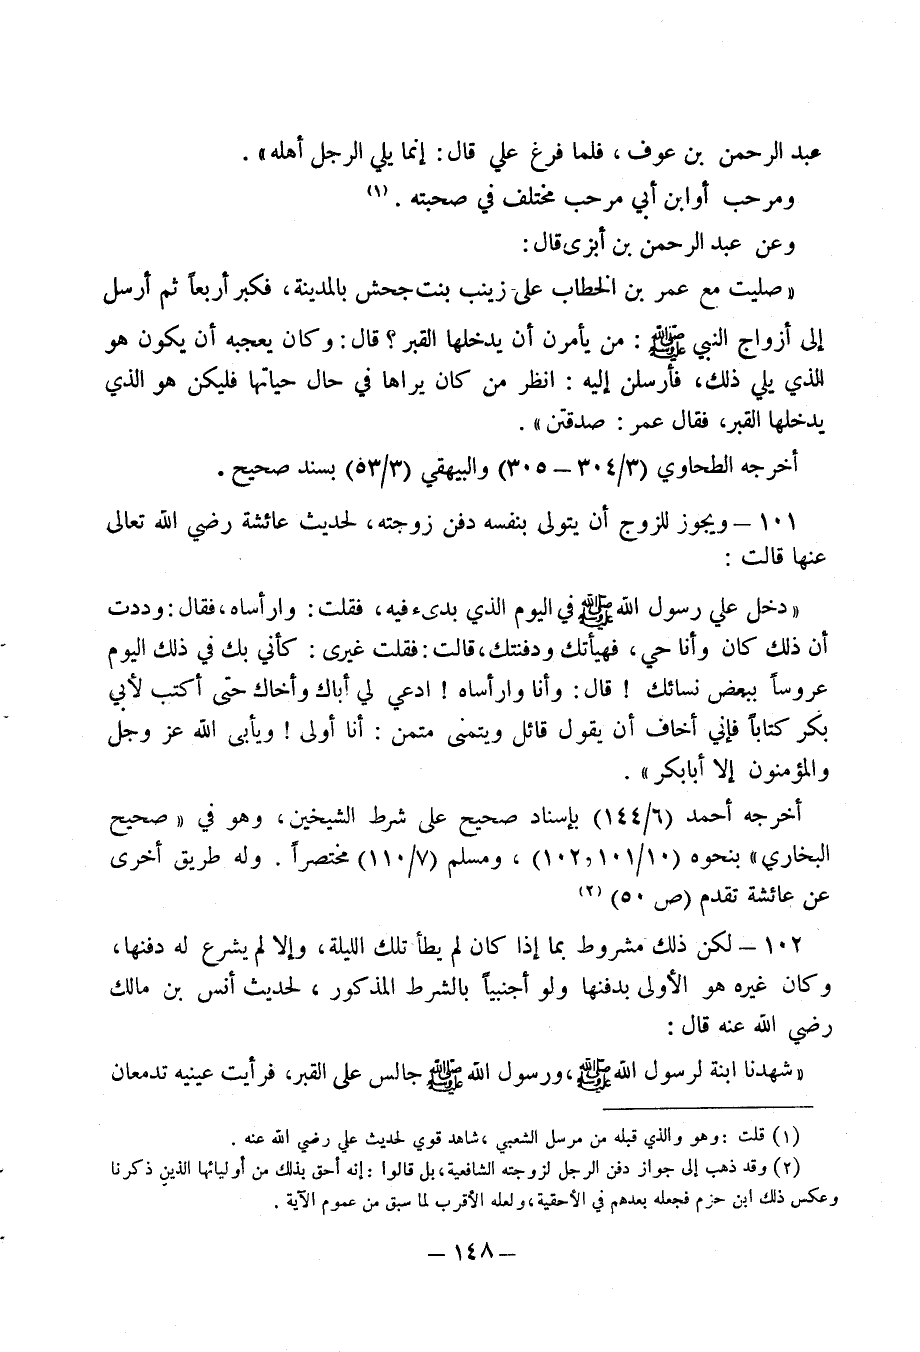 عبد الرحمن بن عوف ، فلما فرغ علي قال : إنما يلي الرجل أهله » .
ومرحب أوابن أبي مرحب مختلف في صحبته . (١)
وعن عبد الرحمن بن أبزى قال :
« صليت مع عمر بن الخطاب على زينب بنت جحش بالمدينة ، فكبر أربعاً ثم أرسل
إلى أزواج النبي ﷺ : من يأمرن أن يدخلها القبر ؟ قال : وكان يعجبه أن يكون هو
الذي يلي ذلك ، فأرسلن إليه : انظر من كان يراها في حال حياتها فليكن هو الذي
يدخلها القبر ، فقال عمر : صدقتن » .
أخرجه الطحاوي (٣/٣٠٤ – ٣٠٥) والبيهقي (٣/٥٣) بسند صحيح .
١٠١ – ويجوز للزوج أن يتولى بنفسه دفن زوجته ، لحديث عائشة رضي الله تعالى
عنها قالت :
« دخل علي رسول الله ﷺ في اليوم الذي بدىء فيه ، فقلت : وارأساه ، فقال : وددت
أن ذلك كان وأنا حي ، فهيأتك ودفنتك ، قالت : فقلت غيرى : كأني بك في ذلك اليوم
عروساً ببعض نسائك ! قال : وأنا وارأساه ! ادعي لي أباك وأخاك حتى أكتب لأبي
بكر كتاباً فإني أخاف أن يقول قائل ويتمنى متمن : أنا أولى ! ويأبى الله عز وجل
والمؤمنون إلا أبابكر » .
أخرجه أحمد (٦/١٤٤) بإسناد صحيح على شرط الشيخين ، وهو في « صحيح
البخاري » بنحوه (١٠/١٠١و١٠٢) ، ومسلم (٧/١١٠) مختصراً . وله طريق أخرى
عن عائشة تقدم (ص ٥٠) (٢)
١٠٢ – لكن ذلك مشروط بما إذا كان لم يطأ تلك الليلة ، وإلا لم يشرع له دفنها ،
وكان غيره هو الأولى بدفنها ولو أجنبياً بالشرط المذكور ، لحديث أنس بن مالك
رضي الله عنه قال :
« شهدنا ابنة لرسول الله ﷺ ، ورسول الله ﷺ جالس على القبر ، فرأيت عينيه تدمعان
(١) قلت : وهو والذي قبله من مرسل الشعبي ، شاهد قوي لحديث علي رضي الله عنه .
(٢) وقد ذهب إلى جواز دفن الرجل لزوجته الشافعية ، بل قالوا : إنه أحق بذلك من أوليائها الذين ذكرنا
وعكس ذلك ابن حزم فجعله بعدهم في الأحقية ، ولعله الأقرب لما سبق من عموم الآية .
– ١٤٨ –